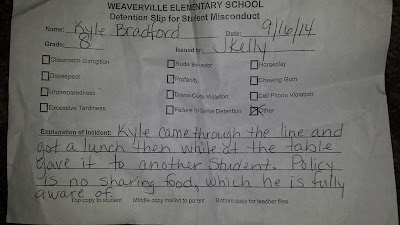 WEAVERVILLE ELEMENTARY SCHOOL
Detention Slip for Student Misconduct
Name: Kyle Bradford Date: 9/16/14
Grade: 8 Issued by: J Kelly
Classroom disruption Rude Behavior Horseplay
Disrespect Profanity Chewing Gum
Unpreparedness Dress Code Violation Cell Phone Violation
Excessive Tardiness Failure to Serve Detention Other
Explanation of Incident: Kyle came through the line and
got a lunch then while at the table
gave it to another student. Policy
is no sharing food, which he is fully
aware of.
Top copy to student Middle copy mailed to parent Bottom copy for teacher files